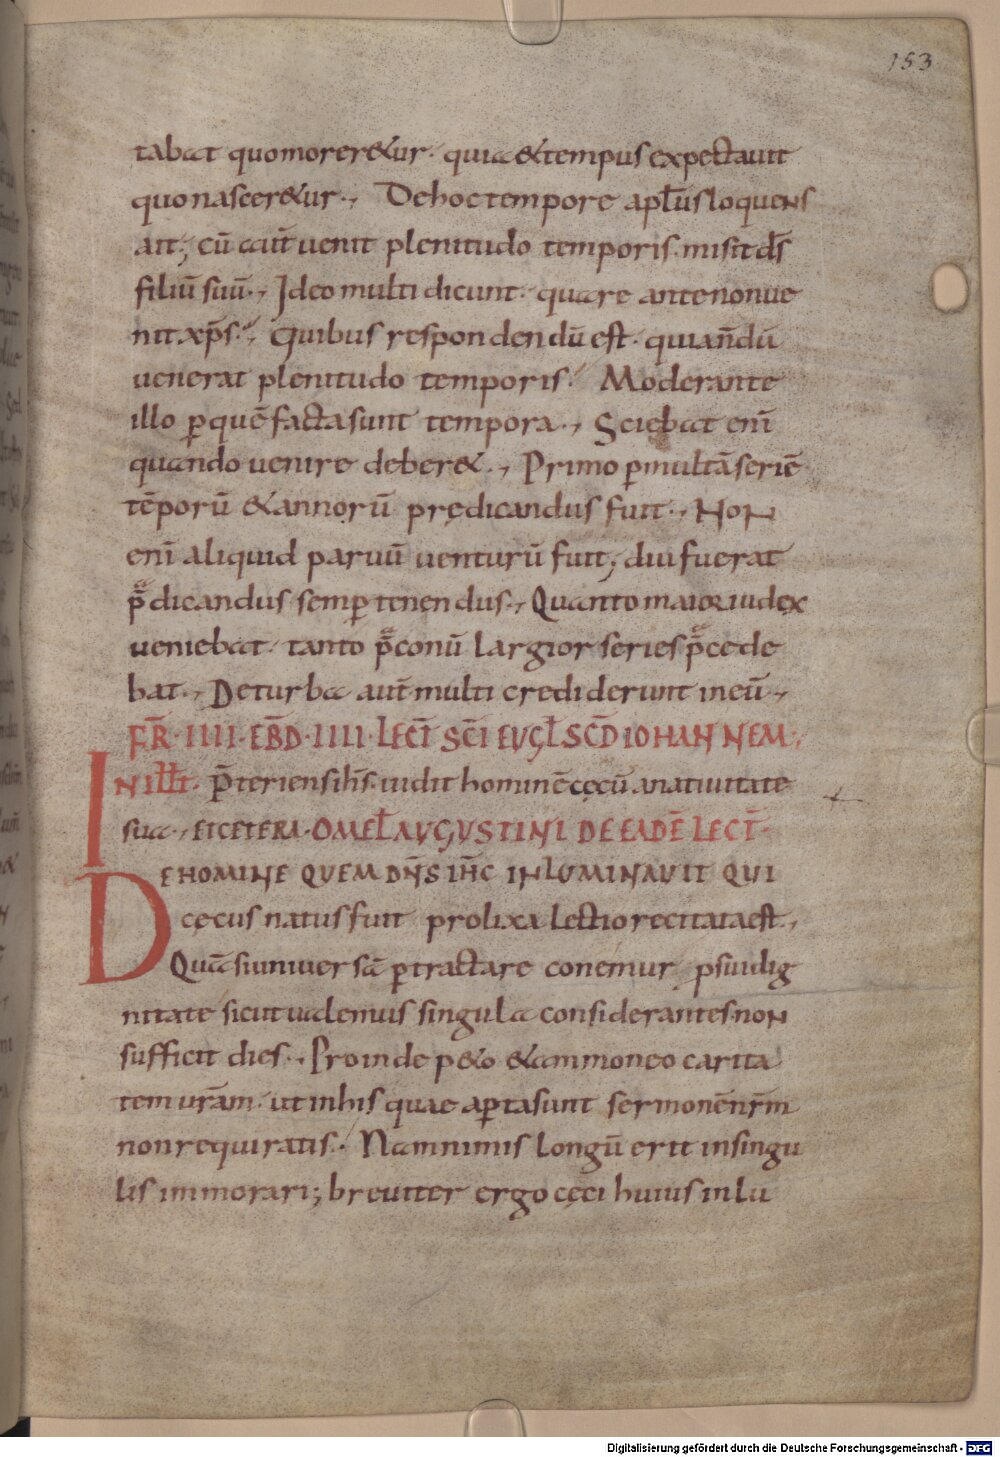 153
tabat quomorer&ur· quia &tempus expectauit
quonascer&ur·, Dehoc tempore apłus loquens
ait; cū aut̄ uenit plenitudo temporis· misit d̄s
filiū suū·, Ideo multi dicunt· quare ante nonue
nit xp̄s·, Quibus respondendū est· quia n̄dū
uenerat plenitudo temporis· Moderante
illo ꝑ quē facta sunt tempora·, Sciebat enī
quando uenire deber&·, Primo ꝑ multā seriē
tēporū &annorū prędicandus fuit·, NoN
enī aliquid paruū uenturū fuit; diu fuerat
p̄dicandus semꝑ tenendus·, Quanto maior iudex
ueniebat· tanto p̄conū largior series p̄cede
bat·, De turba aut̄ multi crediderunt in eū·,
FR̄·IIII·EBD̄·IIII·LECT̄ SC̄I EUGL̄ SCD̄ IOHANNEM·,
IN ILLT̄· P̄teriens ih̄s· uidit hominē cęcū a natiuitate
sua·, ETCETERA· OMEL̄ AUGUSTINI DE EADĒ LECT̄·
DE HOMINE QUEM DN̄S IH̄C INLUMINAUIT QUI
cęcus natus fuit prolixa lectio recitata est·,
Quā si uniuersā ꝑtractare conemur ꝓ sui dig
nitate sicut ualemus singula considerantes· noN
sufficit dies·, Proinde p&o &ammoneo carita
tem urām· ut in his quae aꝑta sunt sermonē nr̄m
non requiratis· Nam nimis longū erit in singu
lis immorari; breuiter ergo cęci huius inlu
Digitalisierung gefördert durch die Deutsche Forschungsgemeinschaft - DFG